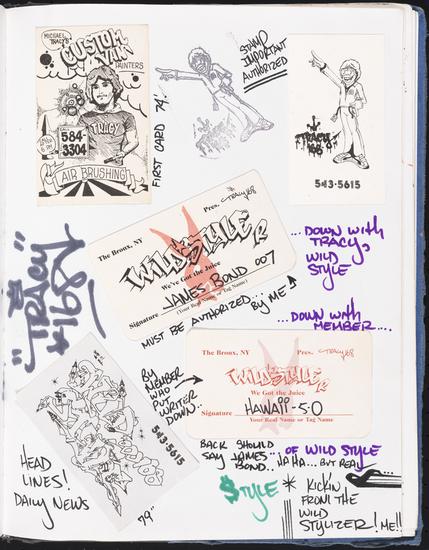 MICHAEL
TRACY'S
CUSTOM
VAN
PAINTERS
CALL
584-
3304
TRACY
AIR BRUSHING
FIRST CARD 74'
STAMP
IMPORTANT
AUTHORIZED
TRACY
168
543-5615
The Bronx, NY
Pres. TRACY 168
WILD STYLE
We've Got the Juice
JAMES BOND 007
Signature
(Your Real Name or Tag Name)
MUST BE AUTHORIZED... BY ME
...DOWN WITH
TRACY,
WILD
STYLE
...DOWN WITH
MEMBER....
"TRACY
168"
The Bronx, NY
Pres. TRACY 168
WILD STYLE
We've Got the Juice
Signature HAWAII-5O
Your Real Name or Tag Name
BY
MEMBER
WHO
PUT
WRITER
DOWN..
543-5615
HEAD
LINES!
DAILY NEWS
79"
BACK SHOULD
SAY JAMES
BOND..
...OF WILD STYLE
HA HA... BUT REAL
STYLE
* KICKIN
FROM THE
WILD
STYLIZER! ME!!